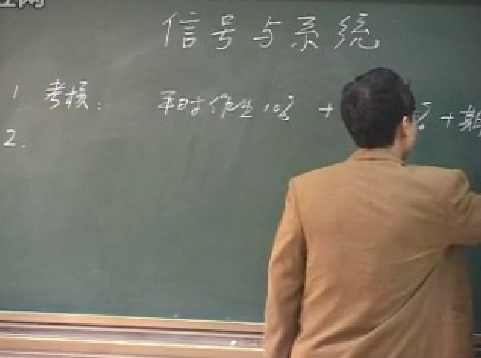 信号与系统
1 考核： 平时作业10% + % + 期
2.